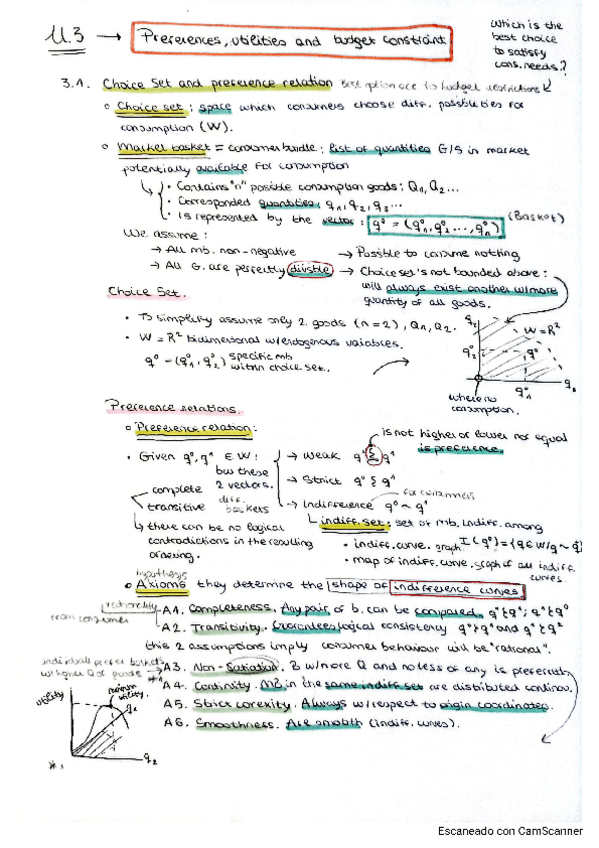 U.3 → Preferences, utilities and budget constraint
which is the
best choice
to satisfy
cons. needs?
3.1. Choice Set and preference relation Best option acc to budget restrictions
Choice set: space which consumers choose diff. possibilities for
consumption (W).
Market basket = consumer bundle: list of quantities G/S in market
potentially available for consumption
• Contains "n" possible consumption goods: Q1, Q2...
• Corresponded quantities: q1, q2, q3...
• Is represented by the vector: q⁰ = (q⁰1, q⁰2 ..., q⁰n) (Basket)
We assume:
→ All mb. non-negative → Possible to consume nothing
→ All G. are perfectly divisible → Choice set's not bounded above:
will always exist another w/more
quantity of all goods.
Choice Set.
• To simplify assume only 2 goods (n=2), Q1, Q2.
• W = R² bidimensional w/endogenous variables.
q⁰ = (q⁰1, q⁰2) specific mb
within choice set.
q2
W = R²
q⁰2
q⁰
q⁰1
q2
where no
consumption.
Preference relations.
Preference relation:
is not higher or lower nor equal
is preference.
• Given q⁰, q¹ ∈ W: → Weak q⁰ ≿ q¹
bw these
2 vectors. → Strict q⁰ ≻ q¹
complete
transitive
diff.
baskets
→ Indifference q⁰ ~ q¹
for consumers
indiff. set: set of mb. indiff. among
there can be no logical
contradictions in the resulting
ordering.
• indiff. curve. graph I(q⁰) = {q∈W/q ~ q
• map of indiff. curve. graph of all indiff.
curves.
hypothesis
Axioms they determine the shape of indifference curves
rationality
from consumer
A1. Completeness. Any pair of b. can be compared. q⁰≿q¹; q¹≿q⁰
A2. Transitivity. Guarantees logical consistency q⁰≿q¹ and q¹≿q²
this 2 assumptions imply consumer behaviour will be "rational".
individuals prefer baskets
w/ higher Q of goods
A3. Non-Satiation. B w/more Q and no less of any is preferably
A4. Continuity. MB in the same indiff. set are distributed continov.
A5. Strict convexity. Always w/respect to origin coordinates.
A6. Smoothness. Are smooth (indiff. curves).
utility
maximum
utility.
q2
Escaneado con CamScanner